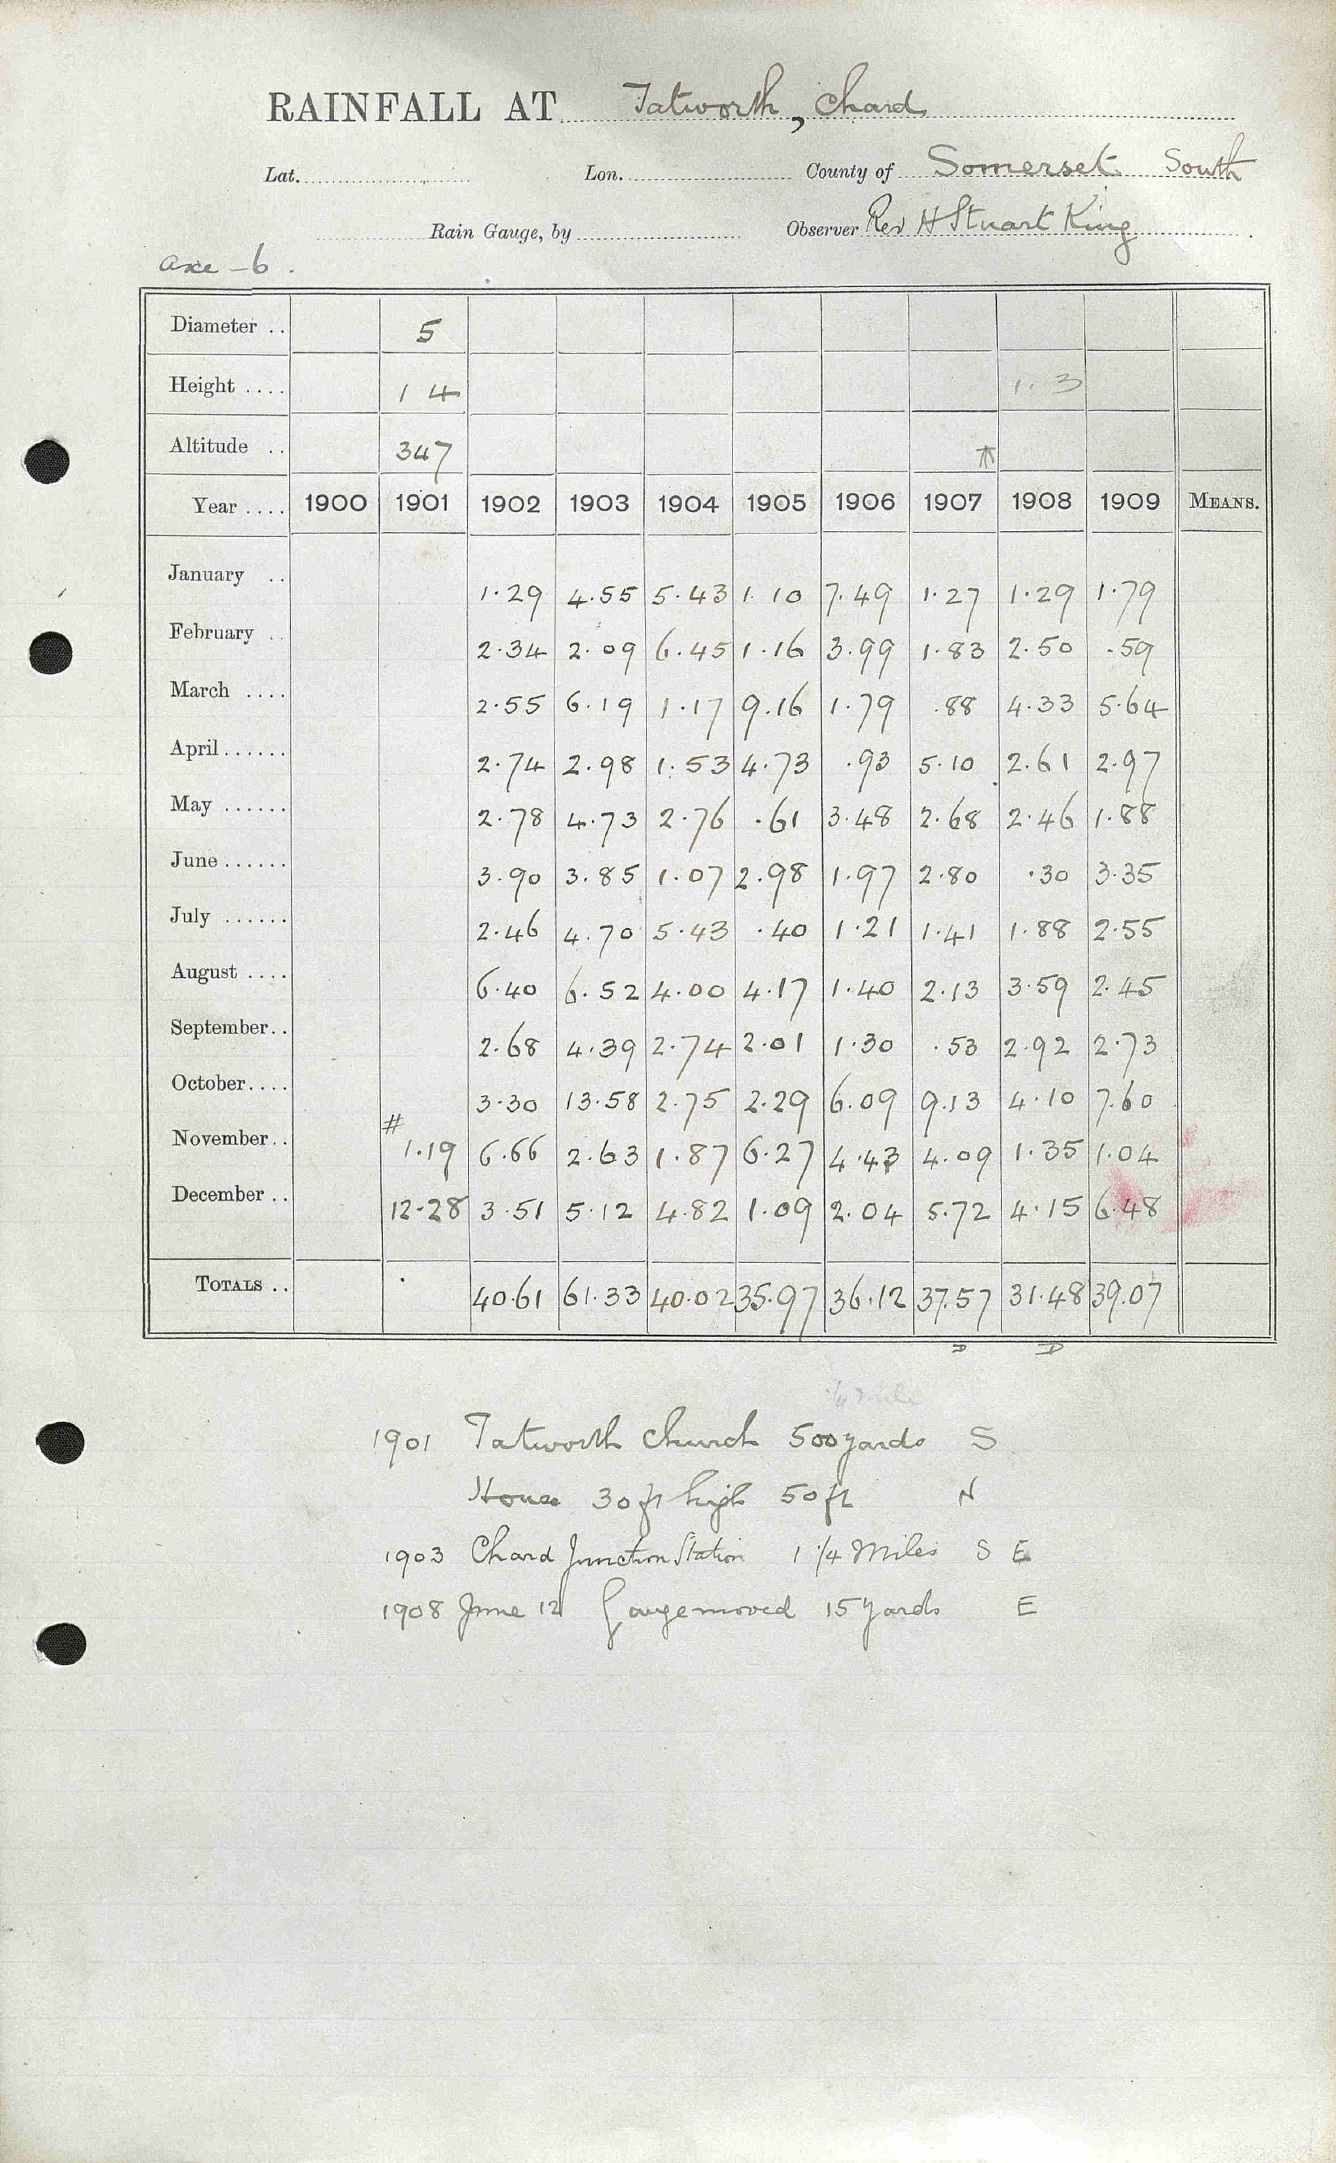 RAINFALL AT Tatworth, Chard
Lat. Lon. County of Somerset South
Rain Gauge, by Observer Rev H Stuart King
axe - 6.
Diameter .. 5
Height .... 1 4 1. 3
Altitude .. 347
Year .... 1900 1901 1902 1903 1904 1905 1906 1907 1908 1909 MEANS.
January .. 1.29 4.55 5.43 1.10 7.49 1.27 1.29 1.79
February .. 2.34 2.09 6.45 1.16 3.99 1.83 2.50 .59
March .... 2.55 6.19 1.17 9.16 1.79 .88 4.33 5.64
April ...... 2.74 2.98 1.53 4.73 .93 5.10 2.61 2.97
May ...... 2.78 4.73 2.76 .61 3.48 2.68 2.46 1.88
June ...... 3.90 3.85 1.07 2.98 1.97 2.80 .30 3.35
July ...... 2.46 4.70 5.43 .40 1.21 1.41 1.88 2.55
August .... 6.40 6.52 4.00 4.17 1.40 2.13 3.59 2.45
September.. 2.68 4.39 2.74 2.01 1.30 .53 2.92 2.73
October.... 3.30 13.58 2.75 2.29 6.09 9.13 4.10 7.60
November.. # 1.19 6.66 2.63 1.87 6.27 4.43 4.09 1.35 1.04
December .. 12.28 3.51 5.12 4.82 1.09 2.04 5.72 4.15 6.48
TOTALS .. 40.61 61.33 40.02 35.97 36.12 37.57 31.48 39.07
D D
1/4 mile
1901 Tatworth Church 500 yards S
House 30 ft high 50 ft N
1903 Chard Junction Station 1 1/4 Miles S E
1908 June 12 Gauge moved 15 Yards E